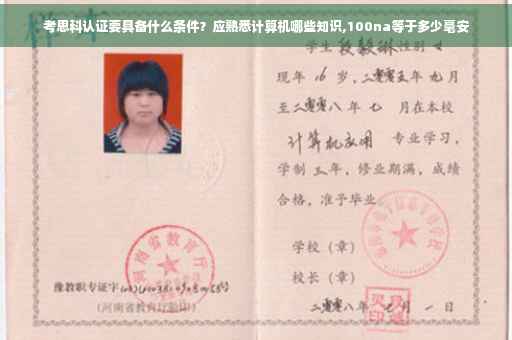 考思科认证要具备什么条件？应熟悉计算机哪些知识,100na等于多少毫安
学生 段毅琳 性别 女
现年 16 岁，二零零五年 九月
至二零零八年 七 月在本校
计算机应用 专业学习，
学制 三 年，修业期满，成绩
合格，准予毕业
学校（章）
校长（章）
豫教职专证字
（河南省教育厅验印）
二零零八年 七 月 一 日
河南省教育厅